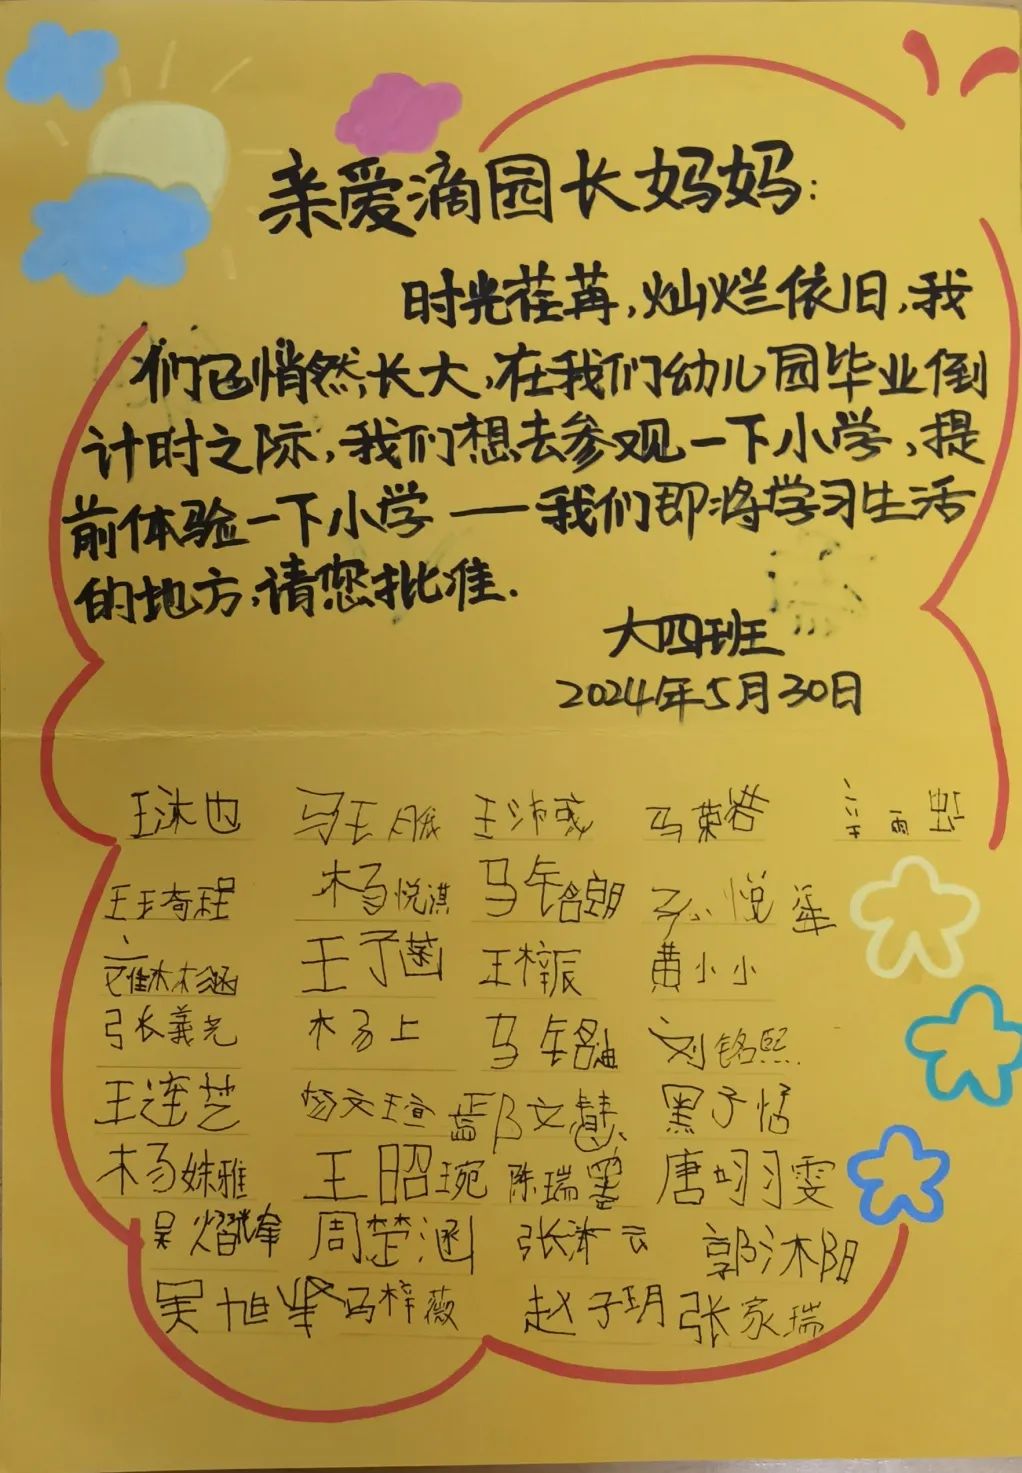 亲爱滴园长妈妈:
时光荏苒,灿烂依旧,我
们已悄然长大,在我们幼儿园毕业倒
计时之际,我们想去参观一下小学,提
前体验一下小学——我们即将学习生活
的地方,请您批准.
大四班
2024年5月30日
王沐也 马玉 王沛彧 马荣 辛雨虹
王奇程 杨悦淇 马年铭朗 孙悦
王子菡 王梓辰 黄小小
张羲尧 杨上 马年铭 刘铭熙
王连芝 杨文瑄 文慧 黑子恬
杨姝雅 王昭琬 陈瑞 唐翊雯
吴熠 周楚涵 张济云 郭沐阳
吴旭峰 冯梓薇 赵子玥 张家瑞